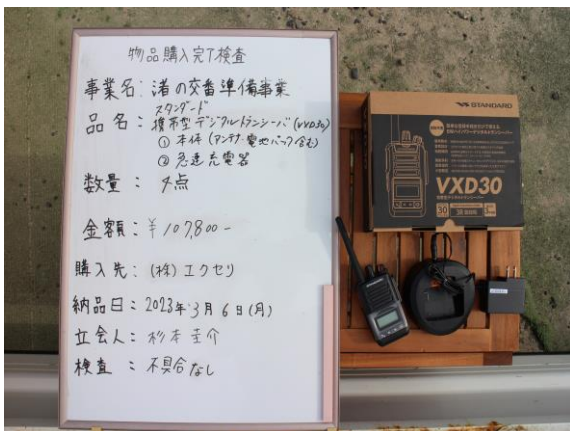 物品購入完了検査
事業名：渚の交番準備事業
スタンダード
品名：携帯型デジタルトランシーバ(VXD30)
① 本体(アンテナ・電池パック含む)
② 急速充電器
数量：4点
金額：￥107,800-
購入先：(株)エクセリ
納品日：2023年3月6日(月)
立会人：杉本圭介
検査：不具合なし
STANDARD
VXD30
30